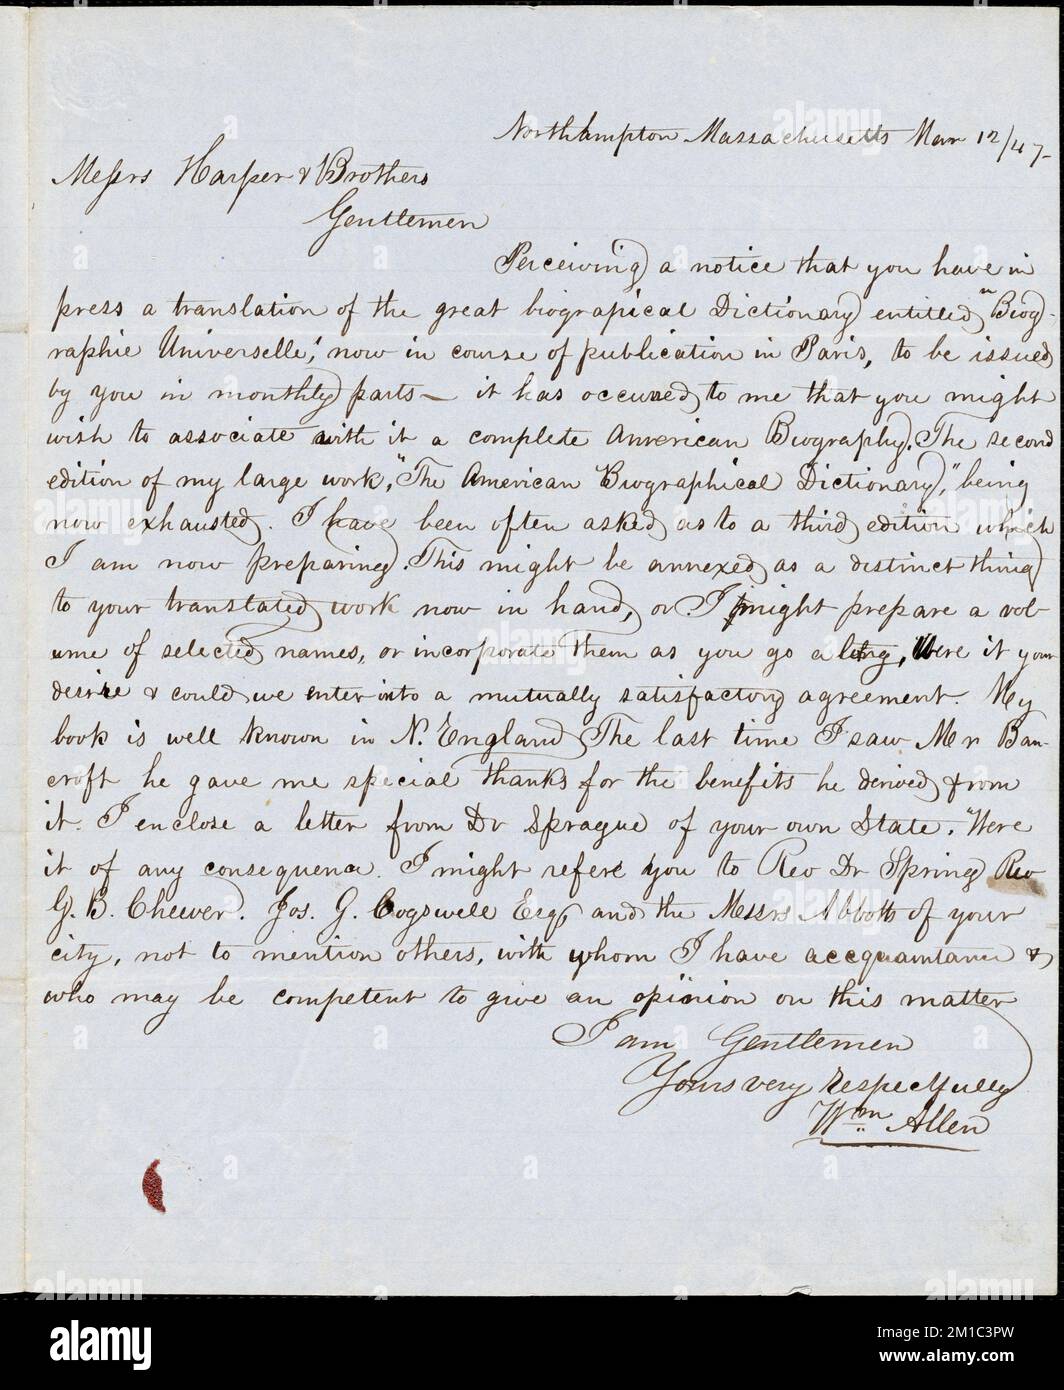 Northampton Massachusetts Mar 12/47-
Messrs Harper & Brothers
Gentlemen
Perceiving a notice that you have in
press a translation of the great biograpical Dictionary entitled "Biog-
raphie Universelle," now in course of publication in Paris, to be issued
by you in monthly parts— it has occured to me that you might
wish to associate with it a complete American Biography. The second
edition of my large work, "The American Biographical Dictionary," being
now exhausted. I have been often asked as to a third edition which
I am now preparing. This might be annexed as a distinct thing
to your translated work now in hand, or I might prepare a vol-
ume of selected names, or incorporate them as you go along, Were it your
desire & could we enter into a mutually satisfactory agreement. My
book is well known in N. England The last time I saw Mr Ban-
croft he gave me special thanks for the benefits he derived from
it. I enclose a letter from Dr Sprague of your own State. Were
it of any consequence. I might refere you to Rev Dr Spring Rev
G. B. Cheever. Jos. G. Cogswell Esq and the Messrs Abbott of your
city, not to mention others, with whom I have accquaintance &
who may be competent to give an opinion on this matter
I am Gentlemen
Yours very respectfully
Wm Allen
alamy
Image ID: 2M1C3PW
www.alamy.com